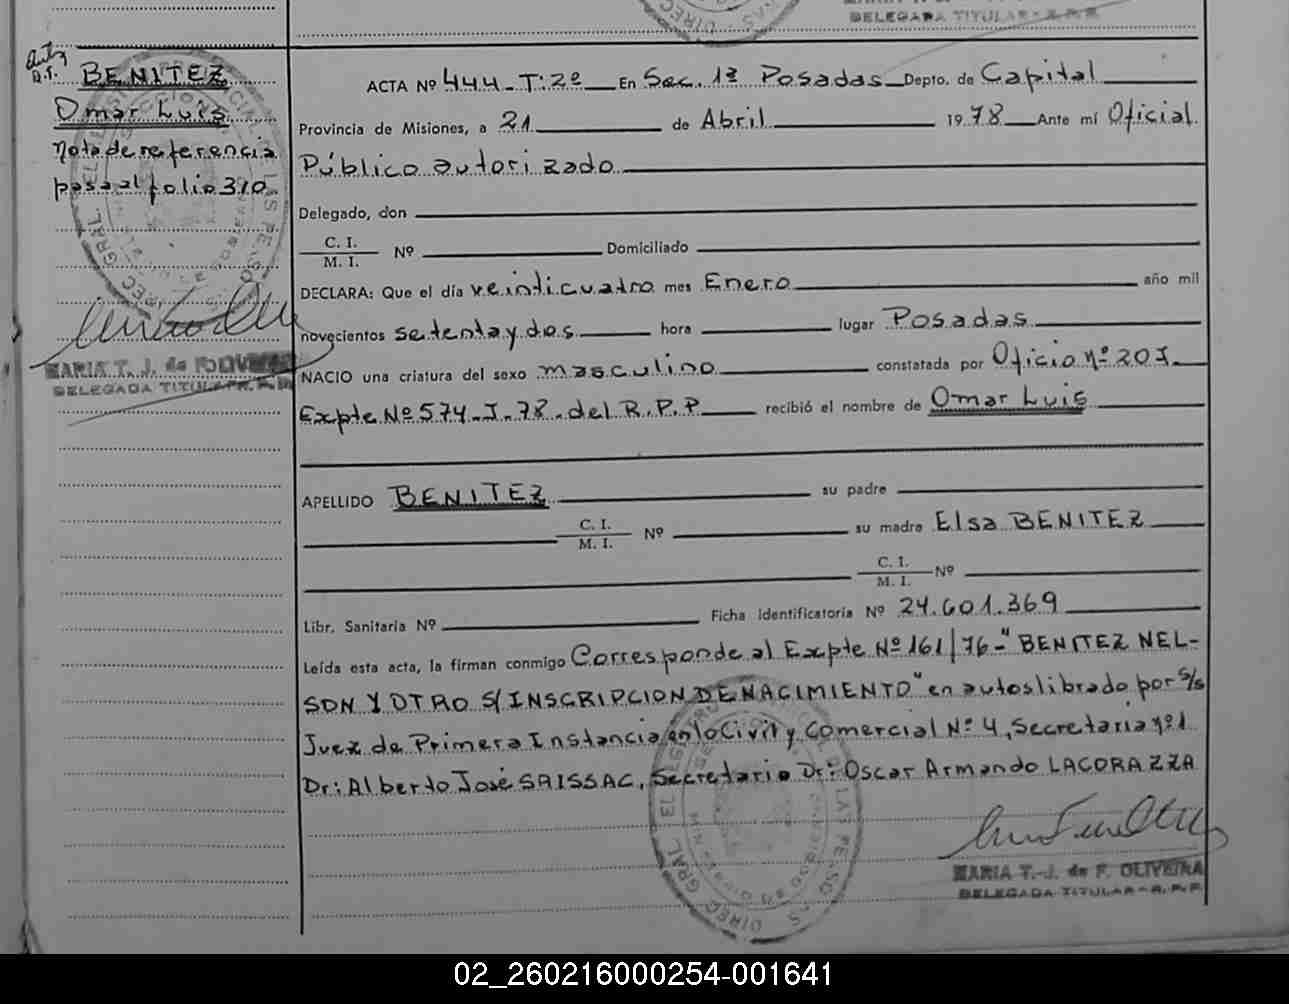 DELEGADA TITULAR - R. P. P.
BENITEZ
Omar Luis
nota de referencia
pasa al folio 310
MARIA T. J. de F. OLIVEIRA
DELEGADA TITULAR - R. P. P.
ACTA Nº 444 - T: 2º En Sec. 1ª Posadas Depto. de Capital
Provincia de Misiones, a 21 de Abril 1978 Ante mí Oficial
Público autorizado
Delegado, don
C. I.
M. I. Nº Domiciliado
DECLARA: Que el día veinticuatro mes Enero año mil
novecientos setenta y dos hora lugar Posadas
NACIO una criatura del sexo masculino constatada por Oficio Nº 207
Expte Nº 574 - J - 78 - del R. P. P recibió el nombre de Omar Luis
APELLIDO BENITEZ su padre
C. I.
M. I. Nº su madre Elsa BENITEZ
C. I.
M. I. Nº
Libr. Sanitaria Nº Ficha Identificatoria Nº 24.601.369
Leída esta acta, la firman conmigo Corresponde al Expte Nº 161/76 - "BENITEZ NEL-
SON Y OTRO S/ INSCRIPCION DE NACIMIENTO" en autos librado por s/s
Juez de Primera Instancia en lo Civil y Comercial Nº 4, Secretaria Nº 1
Dr: Alberto José SAISSAC, Secretario Dr: Oscar Armando LACORAZZA
MARIA T. J. de F. OLIVEIRA
DELEGADA TITULAR - R. P. P.
02_260216000254-001641